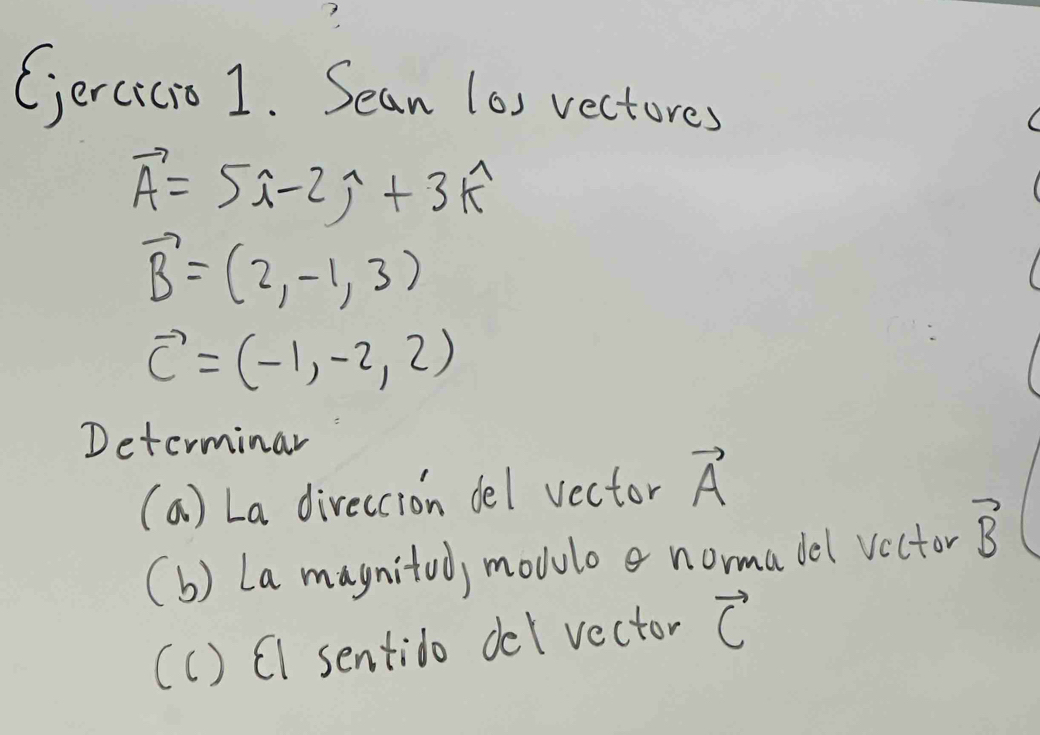 ?
Ejercicio 1. Sean los vectores
A⃗ = 5î-2ĵ + 3k̂
B⃗ = (2,-1, 3)
C⃗ = (-1,-2, 2)
Determinar
(a) La dirección del vector A⃗
(b) La magnitud, modulo o norma del vector B⃗
(c) El sentido del vector C⃗